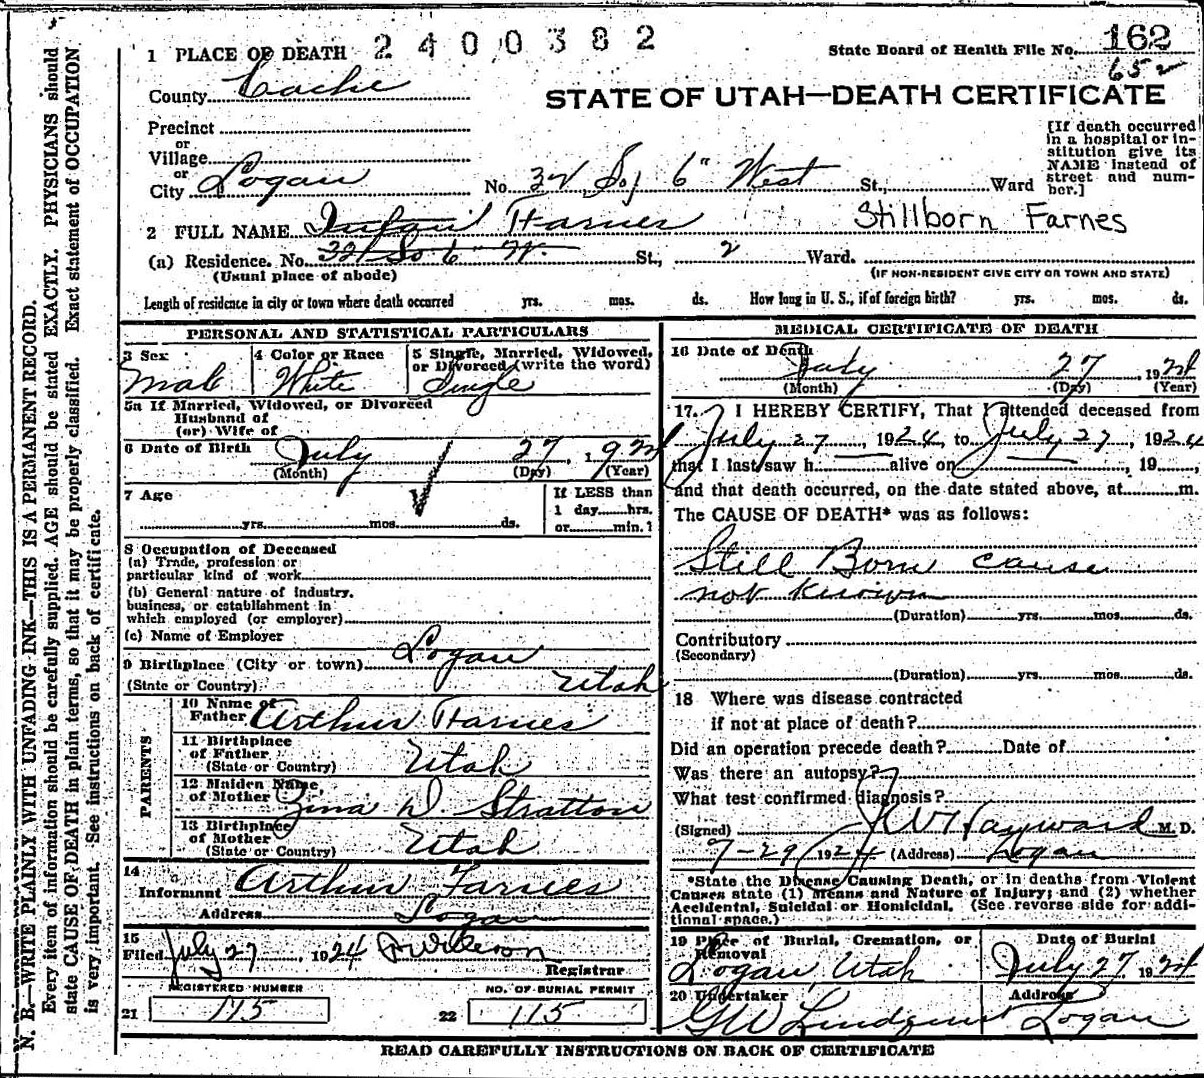 1 PLACE OF DEATH 2400382 State Board of Health File No. 162
652
County Cache
STATE OF UTAH—DEATH CERTIFICATE
Precinct
or
Village
or
City Logan No. 32 So. 6" West St., Ward
[If death occurred
in a hospital or in-
stitution give its
NAME instead of
street and num-
ber.]
2 FULL NAME Infant Farnes Stillborn Farnes
(a) Residence. No. 32 So 6" W. St., 2 Ward.
(Usual place of abode) (IF NON-RESIDENT GIVE CITY OR TOWN AND STATE)
Length of residence in city or town where death occurred yrs. mos. ds. How long in U. S., if of foreign birth? yrs. mos. ds.
PERSONAL AND STATISTICAL PARTICULARS
3 Sex 4 Color or Race 5 Single, Married, Widowed,
or Divorced (write the word)
Male White Single
5a If Married, Widowed, or Divorced
Husband of
(or) Wife of
6 Date of Birth July 27, 1924
(Month) (Day) (Year)
7 Age
yrs. mos. ds.
If LESS than
1 day hrs.
or min.?
8 Occupation of Deceased
(a) Trade, profession or
particular kind of work
(b) General nature of industry,
business, or establishment in
which employed (or employer)
(c) Name of Employer
9 Birthplace (City or town) Logan
(State or Country) Utah
PARENTS
10 Name of
Father Arthur Farnes
11 Birthplace
of Father
(State or Country) Utah
12 Maiden Name
of Mother Zina D Stratton
13 Birthplace
of Mother
(State or Country) Utah
14
Informant Arthur Farnes
Address Logan
15
Filed July 27, 1924
Registrar
REGISTERED NUMBER NO. OF BURIAL PERMIT
21 115 22 115
MEDICAL CERTIFICATE OF DEATH
16 Date of Death
July 27 1924
(Month) (Day) (Year)
17. I HEREBY CERTIFY, That I attended deceased from
July 27, 1924, to July 27, 1924
that I last saw h alive on , 19 ,
and that death occurred, on the date stated above, at m.
The CAUSE OF DEATH* was as follows:
Still Born cause
not known
(Duration) yrs. mos. ds.
Contributory
(Secondary)
(Duration) yrs. mos. ds.
18 Where was disease contracted
if not at place of death?
Did an operation precede death? Date of
Was there an autopsy?
What test confirmed diagnosis?
(Signed) J W Hayward M. D.
7-29, 1924 (Address) Logan
*State the Disease Causing Death, or in deaths from Violent
Causes state (1) Means and Nature of Injury; and (2) whether
Accidental, Suicidal or Homicidal. (See reverse side for addi-
tional space.)
19 Place of Burial, Cremation, or Date of Burial
Removal
Logan, Utah July 27, 1924
20 Undertaker Address
G W Lindquist Logan
READ CAREFULLY INSTRUCTIONS ON BACK OF CERTIFICATE
N. B.—WRITE PLAINLY WITH UNFADING INK—THIS IS A PERMANENT RECORD.
Every item of information should be carefully supplied. AGE should be stated EXACTLY. PHYSICIANS should
state CAUSE OF DEATH in plain terms, so that it may be properly classified. Exact statement of OCCUPATION
is very important. See instructions on back of certificate.